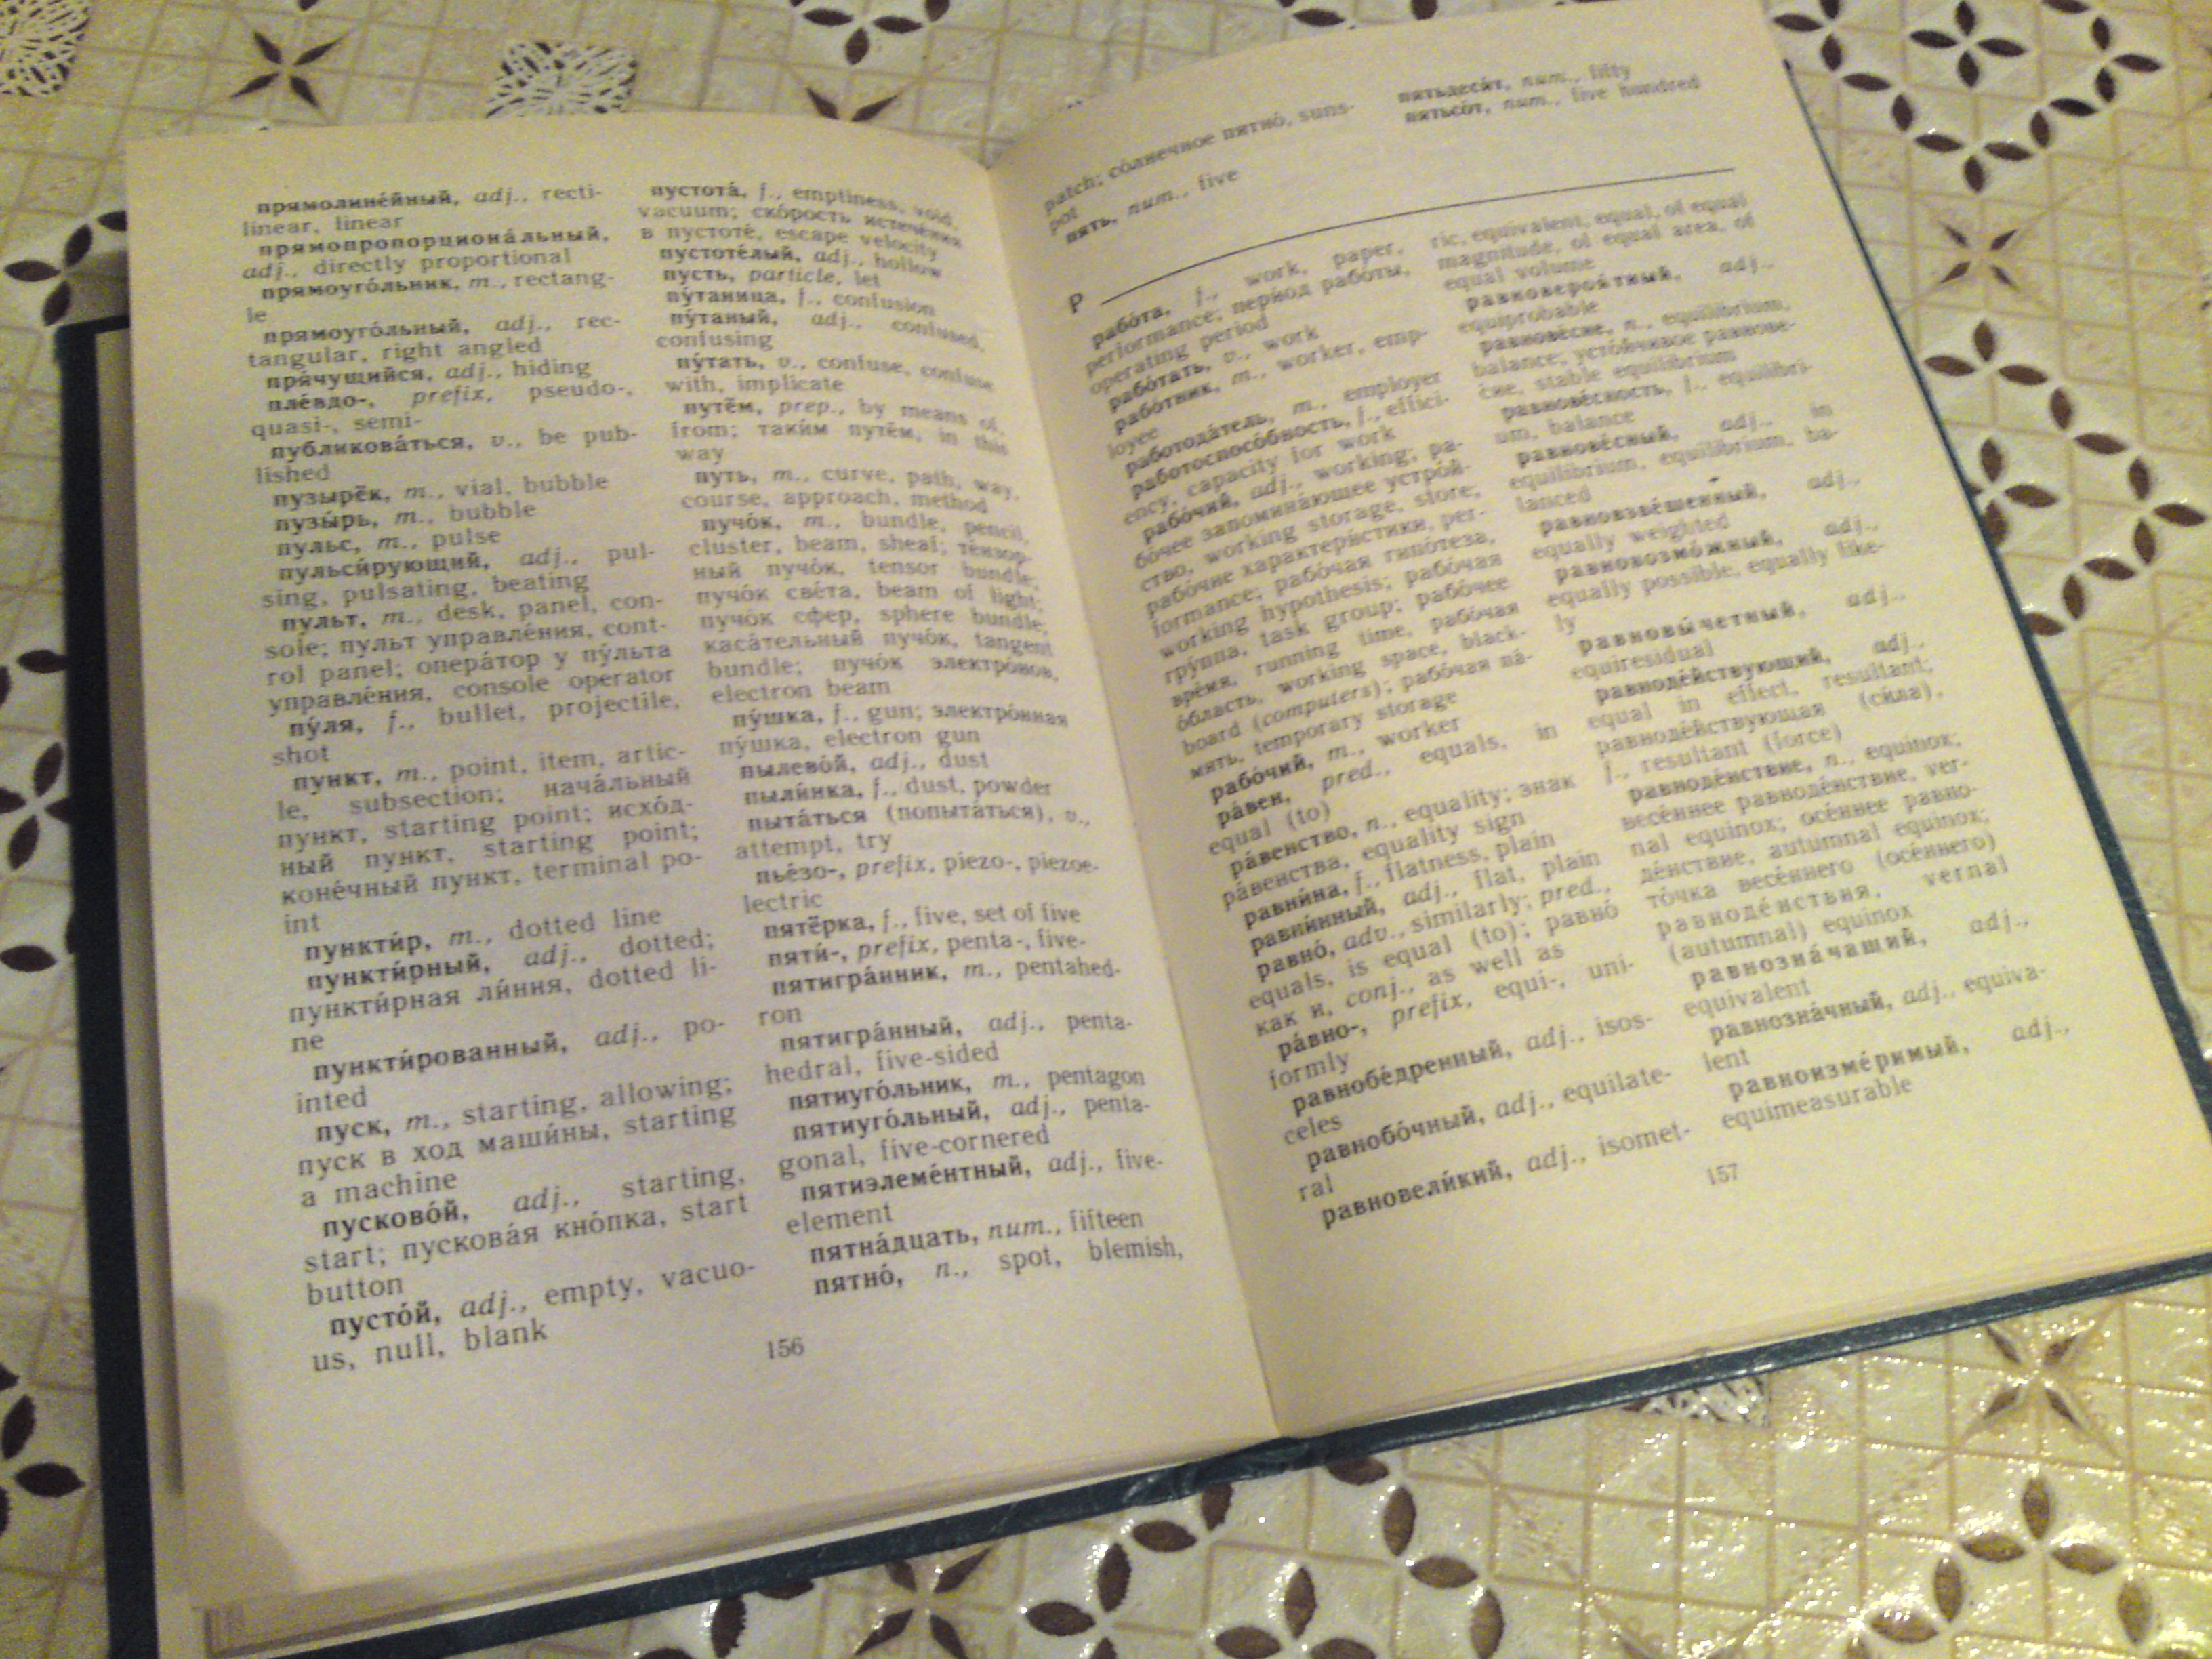 прямолине́йный, adj., recti-
linear, linear
прямопропорциона́льный,
adj., directly proportional
прямоуго́льник, m., rectang-
le
прямоуго́льный, adj., rec-
tangular, right angled
пря́чущийся, adj., hiding
пле́вдо-, prefix, pseudo-,
quasi-, semi-
публикова́ться, v., be pub-
lished
пузырёк, m., vial, bubble
пузы́рь, m., bubble
пульс, m., pulse
пульси́рующий, adj., pul-
sing, pulsating, beating
пульт, m., desk, panel, con-
sole; пульт управле́ния, cont-
rol panel; опера́тор у пу́льта
управле́ния, console operator
пу́ля, f., bullet, projectile,
shot
пункт, m., point, item, artic-
le, subsection; нача́льный
пункт, starting point; исхо́д-
ный пункт, starting point;
коне́чный пункт, terminal po-
int
пункти́р, m., dotted line
пункти́рный, adj., dotted;
пункти́рная ли́ния, dotted li-
ne
пункти́рованный, adj., po-
inted
пуск, m., starting, allowing;
пуск в ход маши́ны, starting
a machine
пусково́й, adj., starting,
start; пускова́я кно́пка, start
button
пусто́й, adj., empty, vacuo-
us, null, blank
пустота́, f., emptiness, void,
vacuum; ско́рость истече́ния
в пустоте́, escape velocity
пустоте́лый, adj., hollow
пусть, particle, let
пу́таница, f., confusion
пу́таный, adj., confused,
confusing
пу́тать, v., confuse, confuse
with, implicate
путём, prep., by means of,
from; таки́м путём, in this
way
путь, m., curve, path, way,
course, approach, method
пучо́к, m., bundle, pencil,
cluster, beam, sheaf; те́нзор-
ный пучо́к, tensor bundle;
пучо́к све́та, beam of light;
пучо́к сфер, sphere bundle;
каса́тельный пучо́к, tangent
bundle; пучо́к электро́нов,
electron beam
пу́шка, f., gun; электро́нная
пу́шка, electron gun
пылево́й, adj., dust
пыли́нка, f., dust, powder
пыта́ться (попыта́ться), v.,
attempt, try
пье́зо-, prefix, piezo-, piezoe-
lectric
пятёрка, f., five, set of five
пяти́-, prefix, penta-, five-
пятигра́нник, m., pentahed-
ron
пятигра́нный, adj., penta-
hedral, five-sided
пятиуго́льник, m., pentagon
пятиуго́льный, adj., penta-
gonal, five-cornered
пятиэлеме́нтный, adj., five-
element
пятна́дцать, num., fifteen
пятно́, n., spot, blemish,
156
patch; со́лнечное пятно́, suns-
pot
пять, num., five
пятьдеся́т, num., fifty
пятьсо́т, num., five hundred
Р
рабо́та, f., work, paper,
performance; пери́од рабо́ты,
operating period
рабо́тать, v., work
рабо́тник, m., worker, emp-
loyee
работода́тель, m., employer
работоспосо́бность, f., effici-
ency, capacity for work
рабо́чий, adj., working; ра-
бо́чее запомина́ющее устро́й-
ство, working storage, store;
рабо́чие характери́стики, per-
formance; рабо́чая гипо́теза,
working hypothesis; рабо́чая
гру́ппа, task group; рабо́чее
вре́мя, running time, рабо́чая
о́бласть, working space, black-
board (computers); рабо́чая па́-
мять, temporary storage
рабо́чий, m., worker
ра́вен, pred., equals, in
equal (to)
ра́венство, n., equality; знак
ра́венства, equality sign
равни́на, f., flatness, plain
равни́нный, adj., flat, plain
равно́, adv., similarly; pred.,
equals, is equal (to); равно́
как и, conj., as well as
ра́вно-, prefix, equi-, uni-
formly
равнобе́дренный, adj., isos-
celes
равнобо́чный, adj., equilate-
ral
равновели́кий, adj., isomet-
ric, equivalent, equal, of equal
magnitude, of equal area, of
equal volume
равновероя́тный, adj.,
equiprobable
равнове́сие, n., equilibrium,
balance; усто́йчивое равнове-
сие, stable equilibrium
равнове́сность, f., equilibri-
um, balance
равнове́сный, adj., in
equilibrium, equilibrium, ba-
lanced
равновзве́шенный, adj.,
equally weighted
равновозмо́жный, adj.,
equally possible, equally like-
ly
равновы́четный, adj.,
equiresidual
равноде́йствующий, adj.,
equal in effect, resultant;
равноде́йствующая (си́ла),
f., resultant (force)
равноде́нствие, n., equinox;
весе́ннее равноде́нствие, ver-
nal equinox; осе́ннее равно-
де́нствие, autumnal equinox;
то́чка весе́ннего (осе́ннего)
равноде́нствия, vernal
(autumnal) equinox
равнозна́чащий, adj.,
equivalent
равнозна́чный, adj., equiva-
lent
равноизме́римый, adj.,
equimeasurable
157